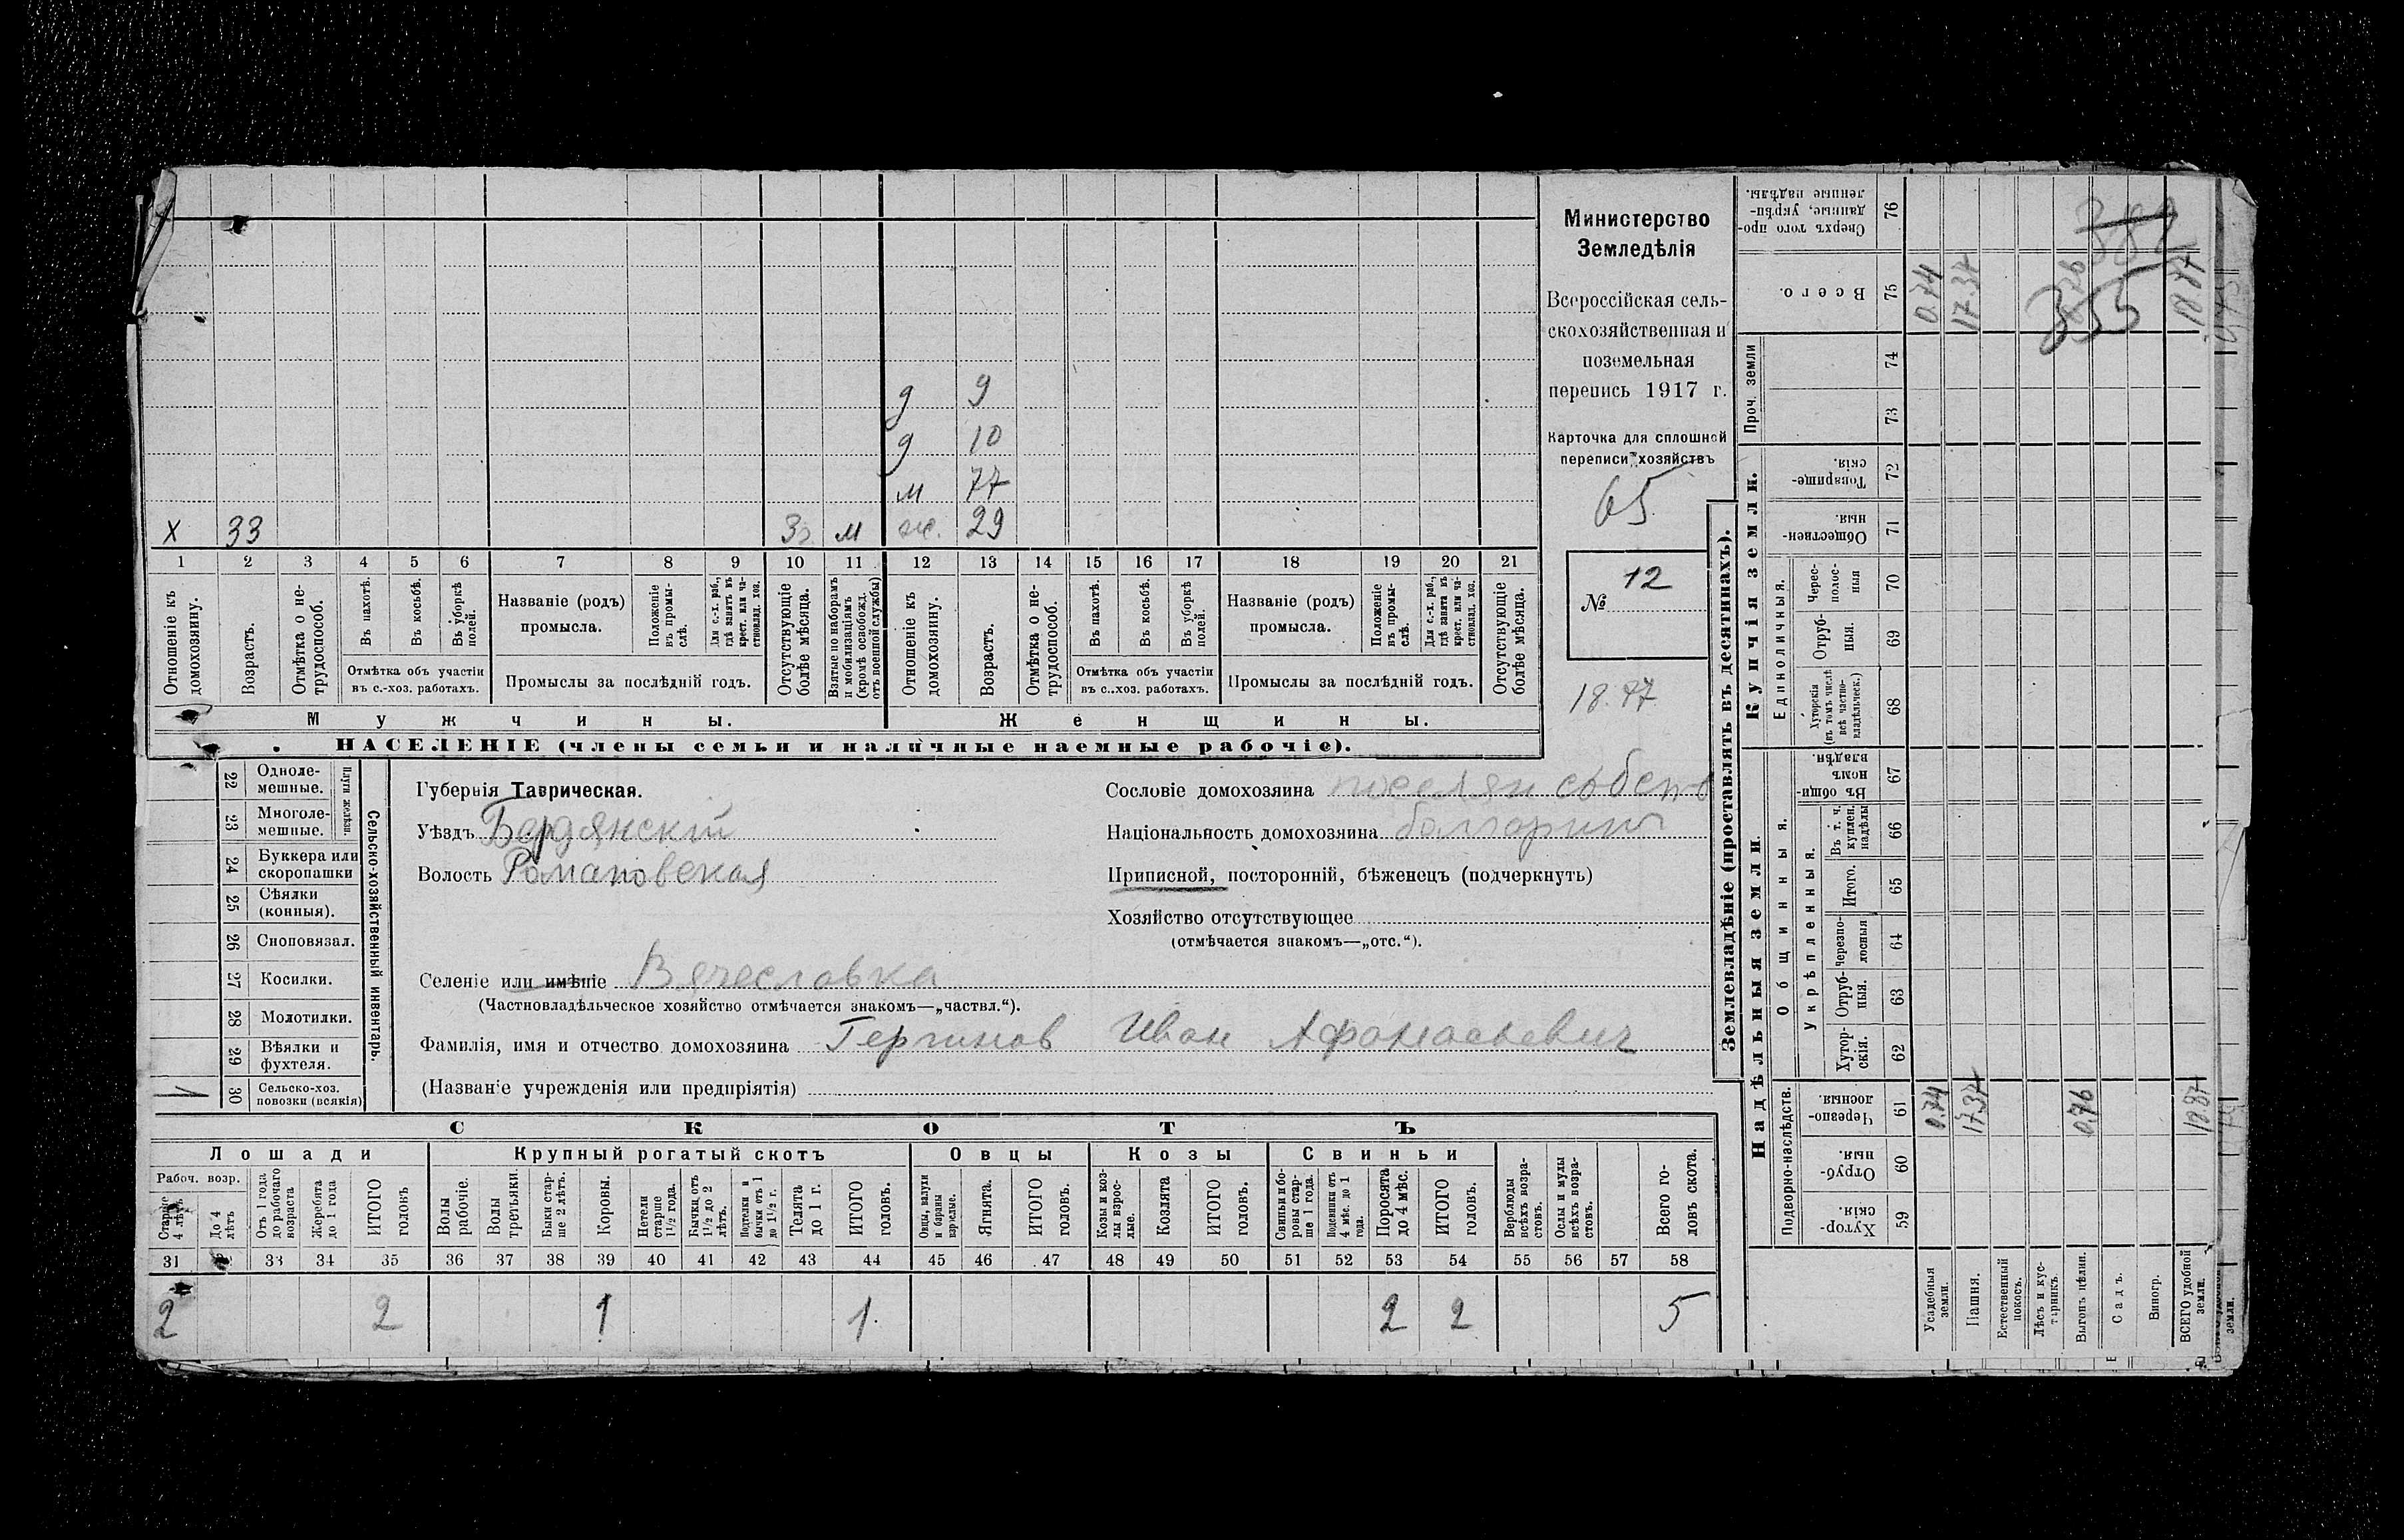 Министерство
Земледѣлія
Всероссійская сель-
скохозяйственная и
поземельная
перепись 1917 г.
Карточка для сплошной
переписи хозяйствъ
65
№ 12
18.87
д 9
д 10
м 77
х 33 3г. м ж. 29
1 2 3 4 5 6 7 8 9 10 11 12 13 14 15 16 17 18 19 20 21
Отношеніе къ домохозяину.
Возрастъ.
Отмѣтка о не-трудоспособ.
Въ пахотѣ.
Въ косьбѣ.
Въ уборкѣ полей.
Отмѣтка объ участіи
въ с.-хоз. работахъ.
Названіе (родъ)
промысла.
Положеніе въ промы-слѣ.
Для с.-х. раб., гдѣ занятъ въ крест. или ча-стновлад. хоз.
Промыслы за послѣдній годъ.
Отсутствующіе болѣе мѣсяца.
Взятые по наборамъ и мобилизаціямъ (кромѣ освобожд. отъ военной службы)
Отношеніе къ домохозяину.
Возрастъ.
Отмѣтка о не-трудоспособ.
Въ пахотѣ.
Въ косьбѣ.
Въ уборкѣ полей.
Отмѣтка объ участіи
въ с..хоз. работахъ.
Названіе (родъ)
промысла.
Положеніе въ промы-слѣ.
Для с.-х. раб., гдѣ занята въ крест. или ча-стновлад. хоз.
Промыслы за послѣдній годъ.
Отсутствующіе болѣе мѣсяца.
Мужчины.
Женщины.
НАСЕЛЕНІЕ (члены семьи и наличные наемные рабочіе).
22 Одноле-мешные.
23 Многоле-мешные.
Плуги желѣзн.
24 Буккера или скоропашки
25 Сѣялки (конныя).
26 Сноповязал.
27 Косилки.
28 Молотилки.
29 Вѣялки и фухтеля.
30 Сельско-хоз. повозки (всякія) 1
Сельско-хозяйственный инвентарь.
Губернія Таврическая.
Уѣздъ Бердянскій
Волость Романовская
Сословіе домохозяина поселян собств
Національность домохозяина болгаринъ
Приписной, посторонній, бѣженецъ (подчеркнуть)
Хозяйство отсутствующее
(отмѣчается знакомъ—„отс.“).
Селеніе или имѣніе Вячеславка
(Частновладѣльческое хозяйство отмѣчается знакомъ—„частвл.“).
Фамилія, имя и отчество домохозяина Гергинов Иван Афанасьевич
(Названіе учрежденія или предпріятія)
СКОТЪ
Лошади
Крупный рогатый скотъ
Овцы
Козы
Свиньи
Рабоч. возр.
Старше 4 лѣтъ
До 4 лѣтъ
Отъ 1 года до рабочаго возраста
Жеребята до 1 года
ИТОГО головъ
Волы рабочіе.
Волы третьяки.
Быки стар-ше 2 лѣтъ.
Коровы.
Нетели старше 1½ года.
Бычки отъ 1½ до 2 лѣтъ.
Подтелки и бычки отъ 1 до 1½ г.
Телята до 1 г.
ИТОГО головъ.
Овцы, валухи и бараны взрослые.
Ягнята.
ИТОГО головъ.
Козы и коз-лы взрос-лые.
Козлята
ИТОГО головъ.
Свиньи и бо-ровы стар-ше 1 года.
Подсвинки отъ 4 мѣс. до 1 года.
Поросята до 4 мѣс.
ИТОГО головъ.
Верблюды всѣхъ возра-стовъ.
Ослы и мулы всѣхъ возра-стовъ.
Всего го-ловъ скота.
31 33 34 35 36 37 38 39 40 41 42 43 44 45 46 47 48 49 50 51 52 53 54 55 56 57 58
2 2 1 1 2 2 5
Землевладѣніе (проставлять въ десятинахъ).
Надѣльныя земли.
Купчія земли.
Проч. земли
Подворно-наслѣдств.
Общинныя.
Укрѣпленныя.
Единоличныя.
Хутор-скія. 59
Отруб-ныя. 60
Черезпо-лосныя. 61
Хутор-скія. 62
Отруб-ныя. 63
Черезпо-лосныя 64
Итого. 65
Въ т. ч. куплен. надѣлы 66
Въ общи-номъ владѣн. 67
Хуторскія (въ томъ числѣ всѣ частно-владѣльческ.) 68
Отруб-ныя. 69
Черес-полос-ныя 70
Обществен-ныя. 71
Товарище-скія. 72
73
74
Всего. 75
Сверхъ того про-данные, укрѣп-ленные надѣлы. 76
Усадебныя земли. 0.74 0.74
Пашня. 17.37 17.37
Естественный покосъ.
Лѣсъ и кус-тарникъ.
Выгонъ цѣлин. 0.76
Садъ.
Виногр.
ВСЕГО удобной земли. 18.87 18.87
355